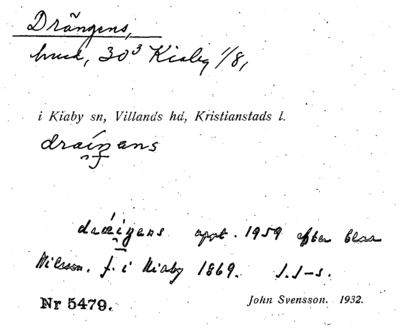 Drängens,
hus, 30³ Kiaby 1/8,
i Kiaby sn, Villands hd, Kristianstads l.
draiŋans
dræigens uppt. 1959 efter Claes
Nilsson. f. i Kiaby 1869. J. S-s.
Nr 5479. John Svensson. 1932.